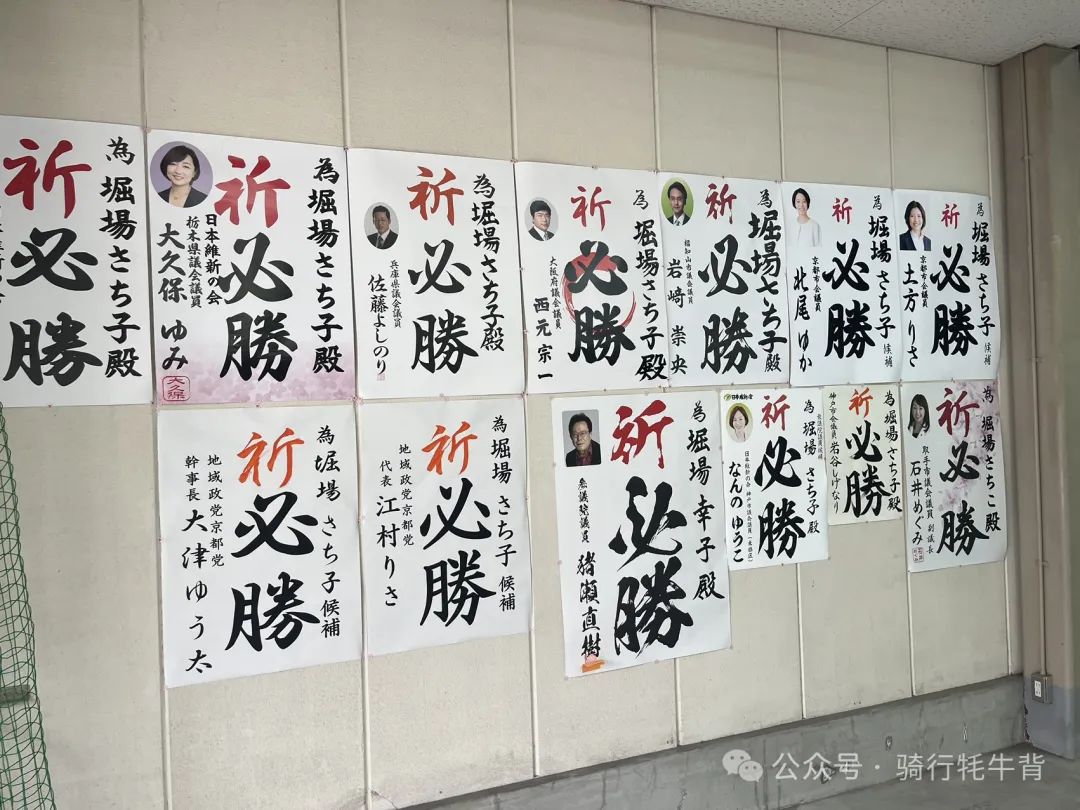 為堀場さち子殿
祈
必
勝
為堀場さち子殿
祈
必
勝
日本維新の会
栃木県議会議員
大久保 ゆみ
大久保
為堀場さち子殿
祈
必
勝
兵庫県議会議員
佐藤よしのり
為堀場さち子殿
祈
必
勝
大阪府議会議員
西元宗一
為堀場さち子殿
祈
必
勝
福知山市議会議員
岩﨑崇央
為堀場さち子候補
祈
必
勝
京都市会議員
北尾ゆか
為堀場さち子候補
祈
必
勝
京都市会議員
土方りさ
為堀場さち子候補
祈
必
勝
地域政党京都党
幹事長 大津ゆう太
為堀場さち子候補
祈
必
勝
地域政党京都党
代表 江村りさ
為堀場幸子殿
祈
必
勝
参議院議員
猪瀬直樹
日本維新の会
衆議院議員候補
為堀場さち子殿
祈
必
勝
日本維新の会 神戸市議会議員(東灘区)
なんのゆうこ
為堀場さち子殿
祈
必
勝
神戸市会議員 岩谷しげなり
為堀場さちこ殿
祈
必
勝
取手市議会議員 副議長
石井めぐみ
公众号·骑行牦牛背